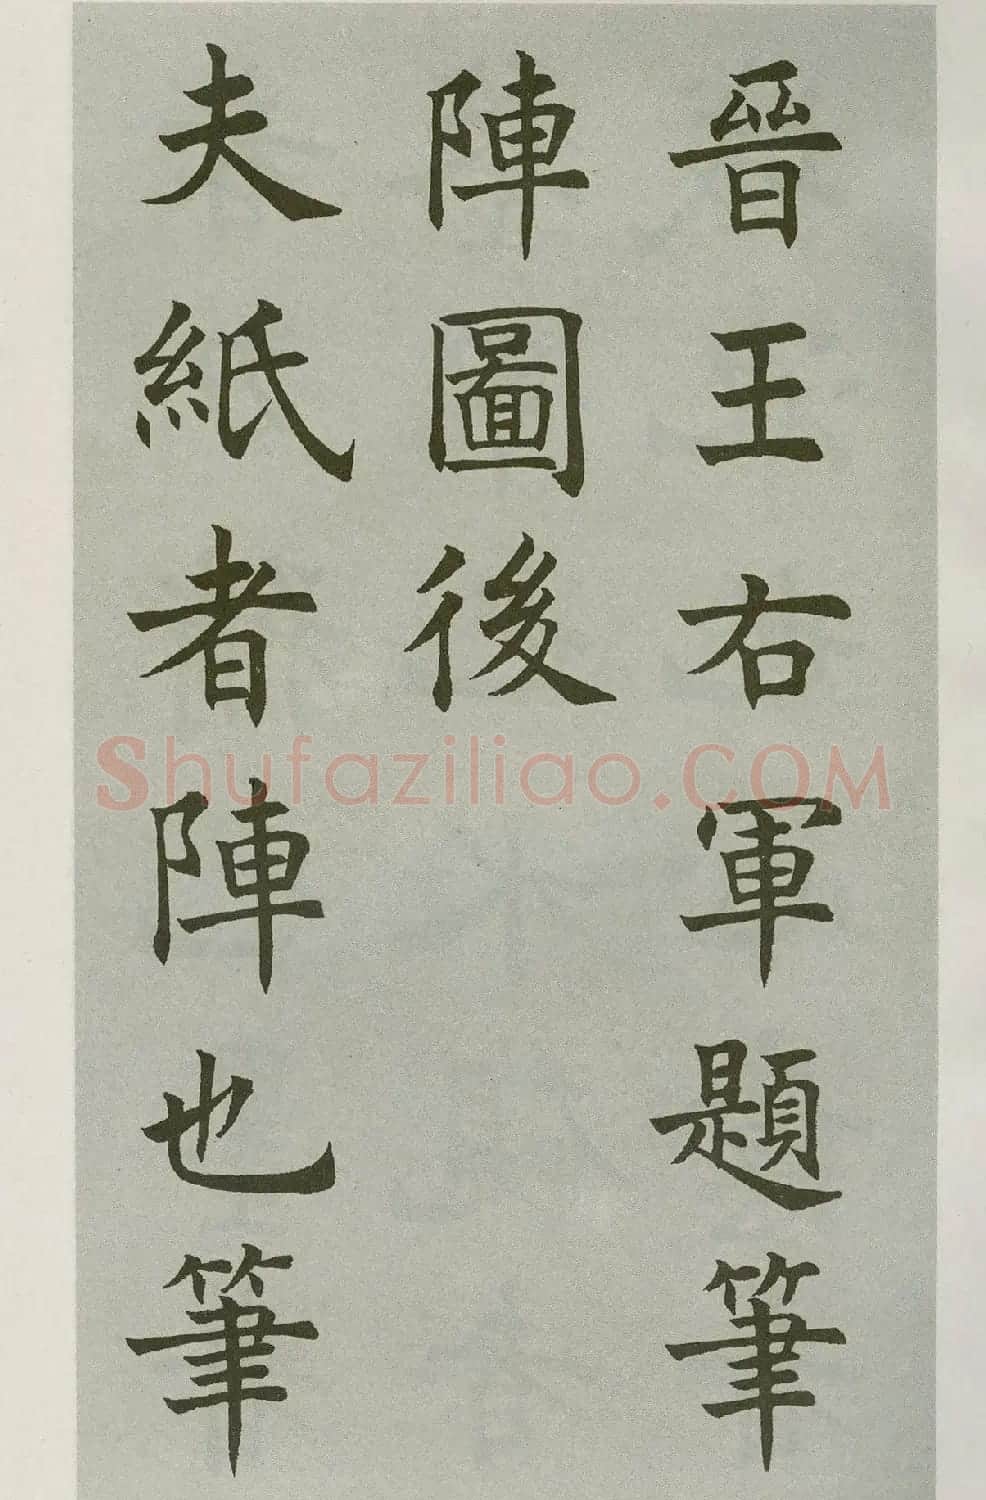 晉王右軍題筆
陣圖後
夫紙者陣也筆
Shufaziliao.COM